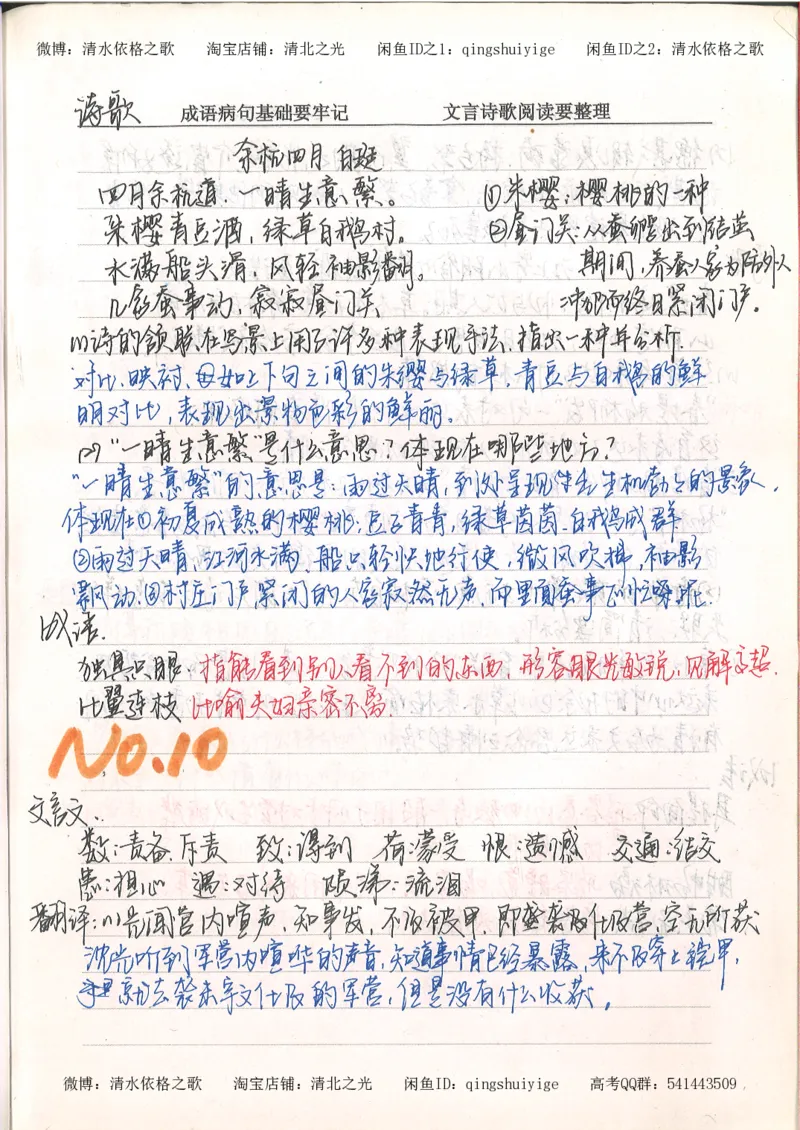 微博：清水依格之歌 淘宝店铺：清北之光 闲鱼ID之1：qingshuiyige 闲鱼ID之2：清水依格之歌
诗歌 成语病句基础要牢记 文言诗歌阅读要整理
余杭四月 白珽
四月余杭道，一晴生意繁。 ①朱樱：樱桃的一种
朱樱青豆酒，绿草白鹅村。 ②昼门关：从蚕孵出到结茧
水满船头滑，风轻袖影翻。 期间，养蚕人家为防外人
几家蚕事动，寂寂昼门关 冲犯而终日紧闭门户。
(1)诗的颔联在写景上用了许多种表现手法，指出一种并分析.
对比、映衬，毋如上下句之间的朱缨与绿草，青豆与白鹅的鲜
明对比，表现出景物色彩的鲜丽。
(2)“一晴生意繁”是什么意思？体现在哪些地方？
“一晴生意繁”的意思是：雨过天晴，到处呈现生机勃勃的景象，
体现在①初夏成熟的樱桃；豆子青青，绿草茵茵，白鹅成群
②雨过天晴，江河水满，船只轻快地行使，微风吹拂，袖影
飘动.③村庄门户紧闭的人家寂然无声，而里面蚕事正忙
成语.
独具只眼，指能看到别人看不到的东西，形容眼光敏锐，见解高超.
比翼连枝 比喻夫妇亲密不离.
No.10
文言文.
数：责备、斥责 致：得到 荷：蒙受 恨：遗憾 交通：结交
患：担心 遇：对待 陨涕：流泪
翻译：以是闻营内喧声，知事发，不及被甲，即袭及营，空无所获
沈光听到军营内喧哗的声音，知道事情已经暴露，来不及穿上铠甲，
就去袭击宇文仕及的军营，但是没有什么收获。
微博：清水依格之歌 淘宝店铺：清北之光 闲鱼ID：qingshuiyige 高考QQ群：541443509